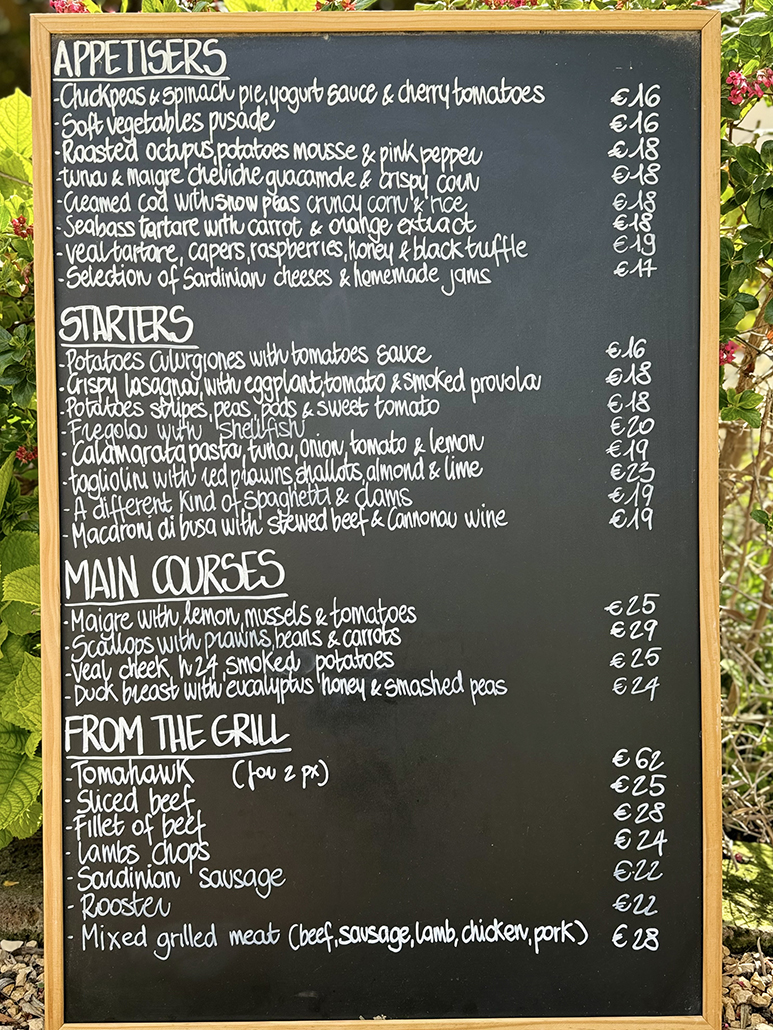 APPETISERS
-Chickpeas & spinach pie, yogurt sauce & cherry tomatoes €16
-Soft vegetables pusade €16
-Roasted octupus, potatoes mousse & pink pepper €18
-tuna & maigre cheviche guacamole & crispy corn €18
-Creamed cod with snow peas crunchy corn & rice €18
-Seabass tartare with carrot & orange extract €18
-veal tartare, capers, raspberries, honey & black truffle €19
-Selection of Sardinian cheeses & homemade jams €17
STARTERS
-Potatoes Culurgiones with tomatoes sauce €16
-Crispy lasagna, with eggplant, tomato & smoked provola €18
-Potatoes stripes, peas, pods & sweet tomato €18
-Fregola with shellfish €20
-Calamarata pasta, tuna, onion, tomato & lemon €19
-tagliolini with red prawns, shallots, almond & lime €23
-A different kind of spaghetti & clams €19
-Macaroni di busa with stewed beef & Cannonau wine €19
MAIN COURSES
-Maigre with lemon, mussels & tomatoes €25
-Scallops with prawns, beans & carrots €29
-veal cheek h24, smoked potatoes €25
-Duck breast with eucalyptus honey & smashed peas €24
FROM THE GRILL
-Tomahawk (for 2 px) €62
-Sliced beef €25
-Fillet of beef €28
-Lambs chops €24
-Sardinian sausage €22
-Rooster €22
-Mixed grilled meat (beef, sausage, lamb, chicken, pork) €28